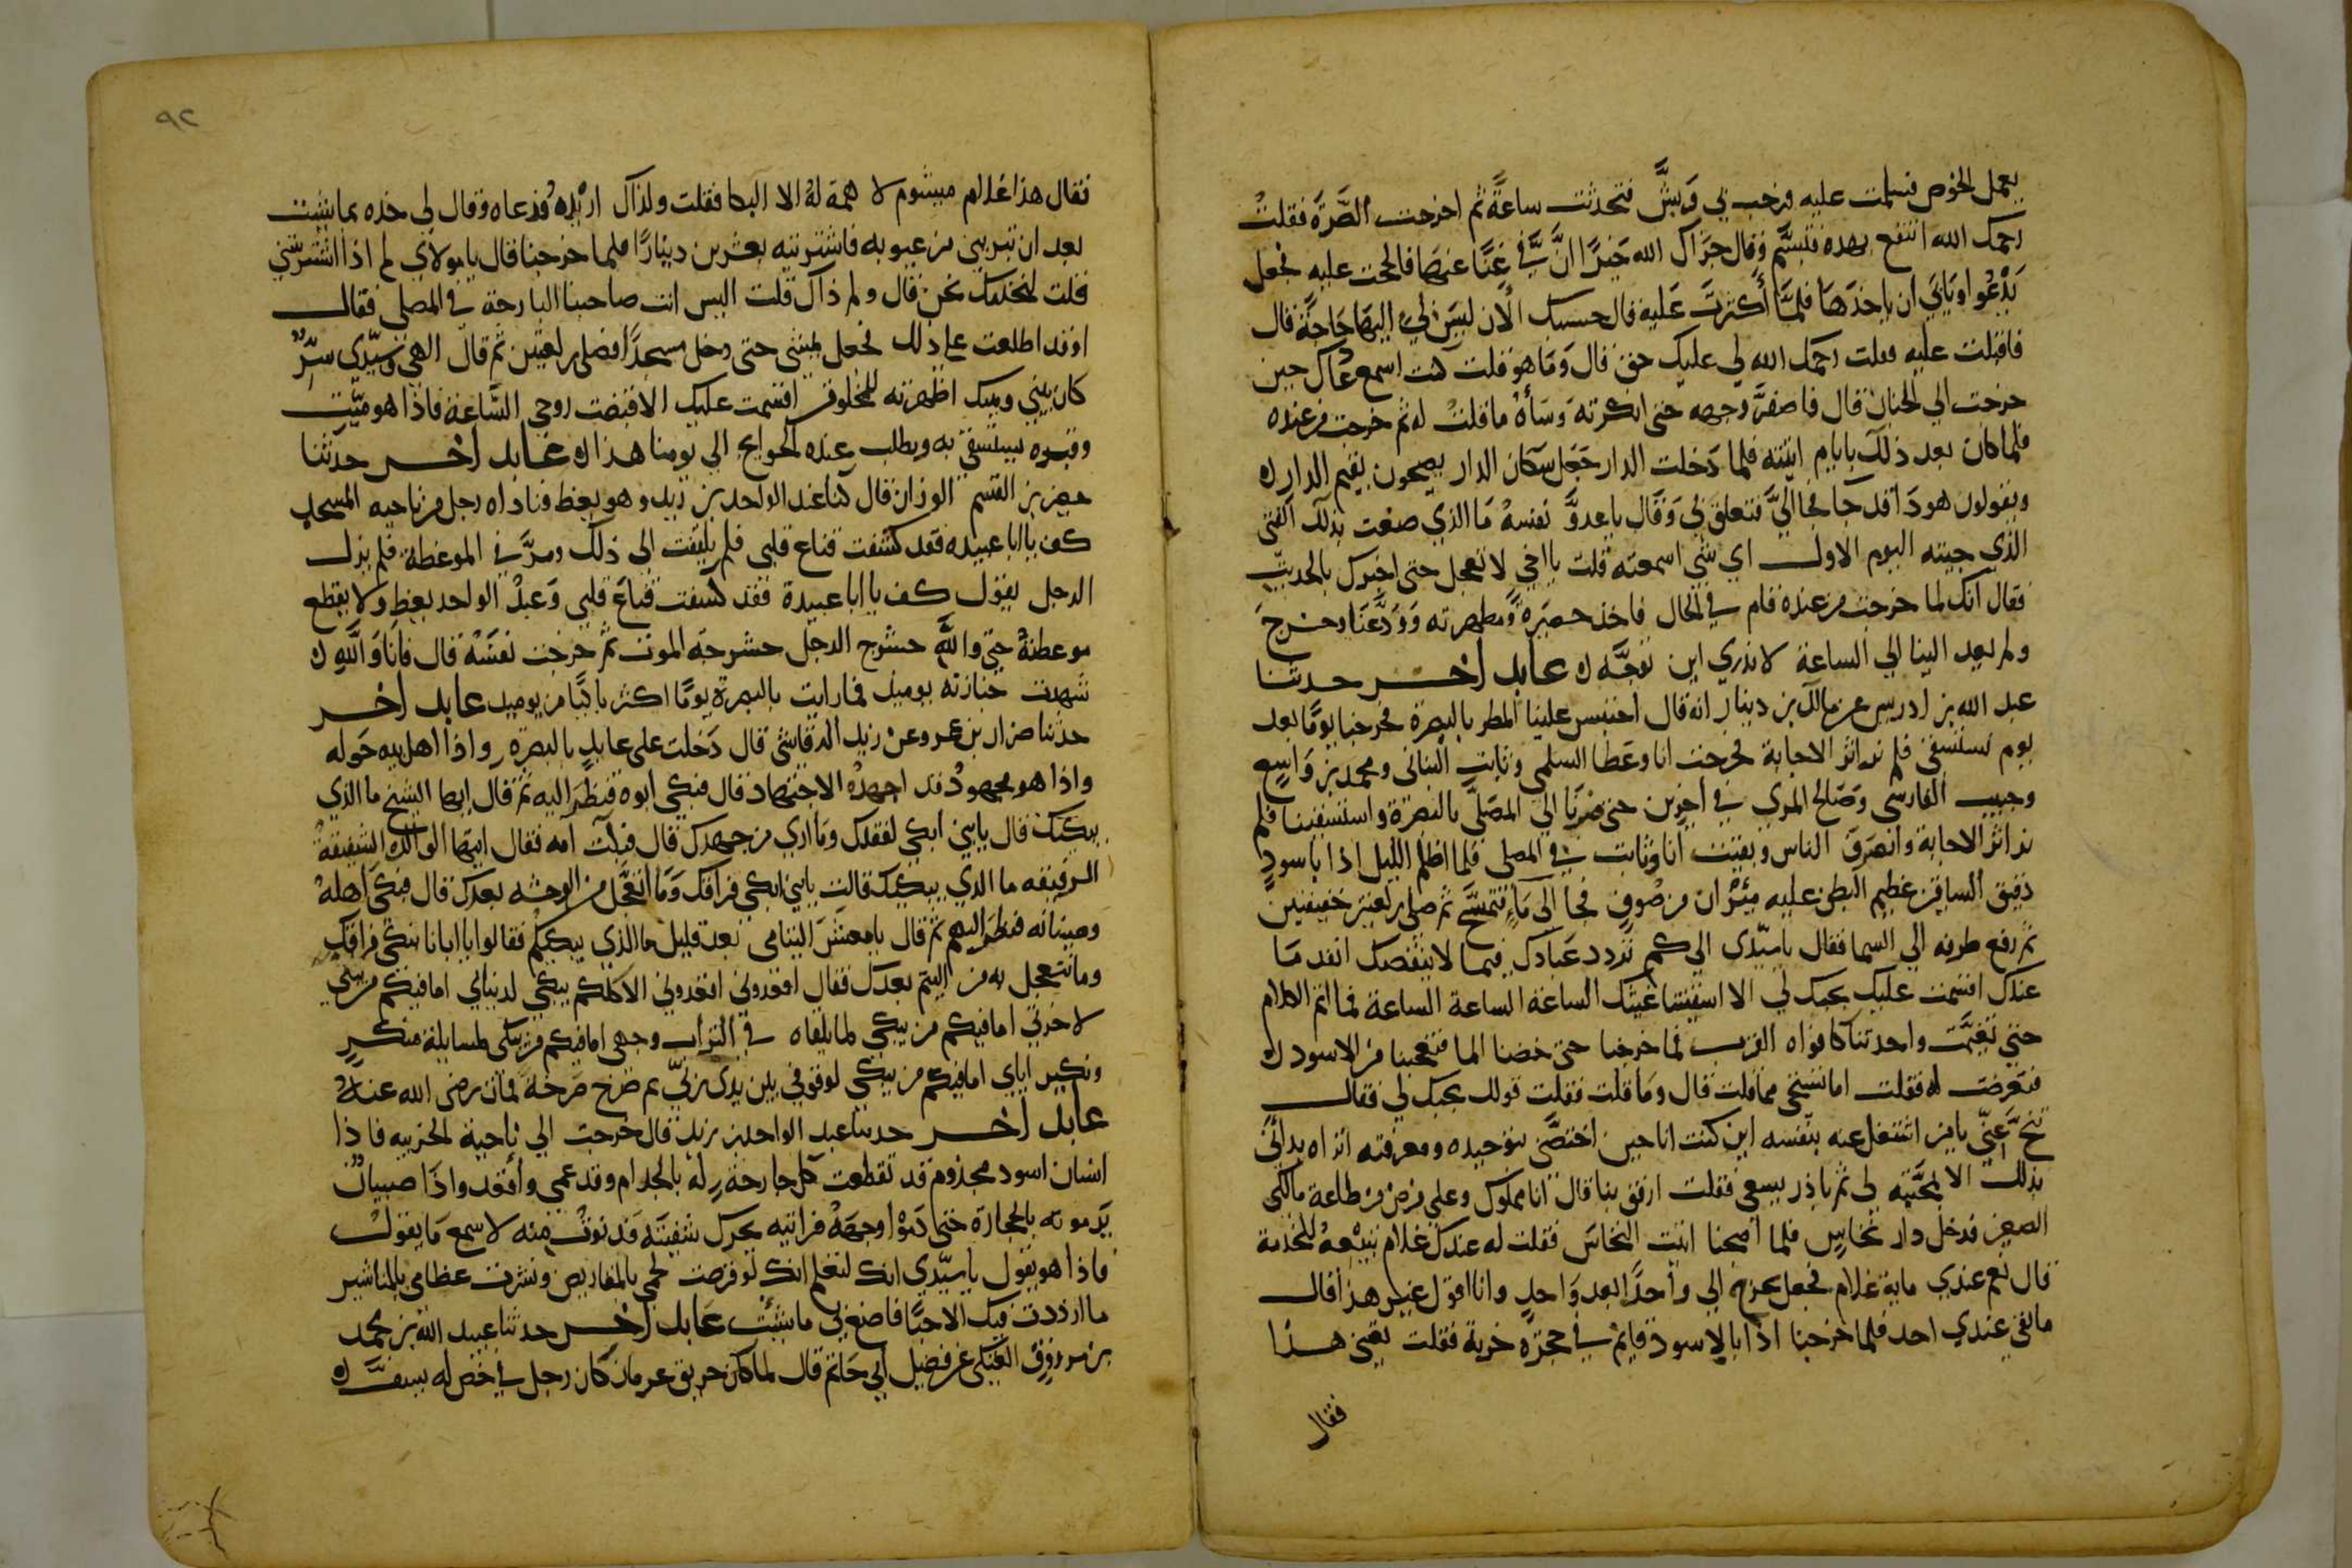 يعمل الخوص فسلمت عليه فرحب بي وَبشَّ فتحدثت ساعةً ثم اخرجت الصَّرَّه فقلتُ
رحمك الله انتفع بهذه فتبسَّم وقال جزاك الله خيرًا انَّ بي غِنًا عنها فالححت عليه فجعل
يَدْعُوا ويَابَي ان ياخذهَا فلمَّا أكثرتَ عَليه قال حسبك الان ليسَ لي اليهَا حَاجَة قال
فاقبلت عليه فقلت رحمك الله لي عليك حق قال وَمَا هو قلت كنت اسمع دعاك حين
خرجت الي الجنان قال فاصفرَّ وجهه حتى انكرته وسَأهُ ما قلتُ له ثم خرجت من عنده
فلما كان بعد ذلكَ بايام اتيته فلما دَخلت الدار جَعَل سكان الدار يصيحون بقيم الدار
ويقولون هودَا قد جَا فجا اليَّ فتعلق بي وَقَال ياعدوَّ نفسهُ مَا الذي صنعت بذلك الفتى
الذي جيته اليوم الاول اي شي اسمعته قلت يا اخي لا تعجل حتى اخبرك بالحديث
فقال انك لما خرجت من عنده قام في الحال فاخذ حصيرَهُ ومطهرته وَوَدَّعَنَا وخرجَ
ولم يعد الينا الي الساعة لا ندري اين توجَّه عابد اخر حدثنا
عبد الله بن ادريس عن مالك بن دينار انه قال احتبس علينا المطر بالبصرة فخرجنا يومًا بعد
يوم نستسقي فلم نر اثر الاجابة فخرجت انا وعَطا السلمي وثابت البناني ومحمد بن وَاسِع
وحبيب الفارسي وصَالح المري في اخرين حتى صرنَا الي المصَلَّي بالبصرة واستسقينا فلم
نر اثر الاجابة وانصرَفَ الناس وبقيت انا وثابت في المصلى فلما اظلم الليل اذا باسودٍ
دقيق الساقين عظيم البطن عليه مِئزران من صُوفٍ فجا الَى مَاءٍ فتمسَّح ثم صلى ركعتين خفيفتين
ثم رفع طرفه الي السما فقال ياسيّدى الي كم تردد عبَادَك فيما لا ينقصك انفد مَا
عندك اقسمت عليك بحبك لي الا اسقيتنا غيثك الساعة الساعة الساعة فما اتم الكلام
حتى تغيَّمَت واخذتنا كافواه القرب فما خرجنا حتى خضنا الما فتعجبنا من الاسود
فتعرضت له فقلت اما تستحي مما قلت قال ومَا قلت فقلت قولك بحبك لي فقال
تنحَّ عنّي يا من اشتغل عنه بنفسه اين كنت انا حين اختصَّني بتوحيده ومعرفته اتراه بداني
بذلك الا لمحَبَّتِه لى ثم باذر يسعى فقلت ارفق بنا قال انا مملوك وعلي فرض من طاعة مالكى
الصغير فدخل دار نخاسٍ فلما اصبحنا اتيت النخاسَ فقلت له عندك غلام تبيعهُ للخدمة
قال نعم عندي ماية غلام فجعل يخرج الي واحدًا بعد وَاحدٍ وانا اقول غير هذا قال
ما بقي عندي احد فلما خرجنا اذا بالاسود قايم في حجرة خربة فقلت بعني هذا
فقال
٩٢
فقال هذا غلام ميشوم لا همة لهُ الا البكا فقلت ولذاك اريْده فدعاه وقال لي خذه بما شيت
بعد ان تبريني من عيوبه فاشتريته بعشرين دينارًا فلما خرجنا قال يا مولاي لم اذا اشتريتني
قلت لنخدمك نحن قال ولم ذاك قلت اليس انت صاحبنا البارحة في المصلى فقال
اوقد اطلعت علي ذلك فجعل يمشي حتى دخل مسجدًا فصلى ركعتين ثم قال الهي وسيّدي سِرٌّ
كان بيني وبينك اظهرته للمخلوقين اقسمت عليك الا قبضت روحي السَّاعة فاذا هو ميّت
وقبره يستسقى به ويطلب عنده الحوايج الي يومنا هذا عابد اخر حدثنا
حصين بن القسم الوزان قال كنا عند الواحد بن زيد وهو يعظ فناداه رجل من ناحيه المسجد
كف يا ابا عبيده فقد كشفت قناع قلبي فلم يلتفت الى ذلك ومرَّ في الموعظة فلم يزل
الرجل يقول كف يا ابا عبيدة فقد كشفت قناعَ قلبي وَعبدُ الواحد يعظ ولا يقطع
موعظتهُ حتي والله حشرج الرجل حشرجة الموت ثم خرجت نفسَهُ قال فانا وَاللهِ
شهدت جنازته يوميذ فما رايت بالبصرة يومًا اكثر باكيًا من يوميذ عابد اخر
حدثنا ضرار بن عمرو عن زيد الرقاشي قال دَخلت على عابدٍ بالبصرةِ واذا اهل بيته حَوله
واذا هو مجهودٌ قد اجهدهُ الاجتهاد قال فبكي ابوه فنظر اليه ثم قال ايها الشيخ ما الذي
يبكيك قال يابني ابكي لفقدك ومَا اري من جهدك قال فبكت امه فقال ايتها الوالده الشفيقةُ
الرفيقه ما الذي يبكيك قالت يابني ابكي فراقك وَمَا اتعجَّل من الوحشه بعدك قال فبكَي اهلهُ
وصبيانه فنظر اليهم ثم قال يا معشرَ اليتامى بعد قليل ما الذي يبكيكم فقالوا يا ابانا نبكي فراقك
وما نتعجل به من اليتم بعدك فقال اقعدوني اقعدوني الا كلكم يبكي لدنياي اما فيكم من يبكي
لاخرتي اما فيكم من يبكي لما يلقاه في التراب وجهى اما فيكم من يبكى لمسايلة منكرٍ
ونكير اياي اما فيكم من يبكي لوقوفي بين يدى ربي ثم صَرخ صَرخة فمات رضى الله عنهُ
عابد اخر حدثنا عبد الواحد بن زيد قال خرجت الي ناحية الخريبه فاذا
انسان اسود مجذوم قد تقطعت كل جارحة له بالجذام وقد عمى وأقعد واذا صبيانٌ
يَرمونه بالحجارة حتى دَمَوْا وجهَهُ فرايته يحرك شفيتَه فدنوت منه لاسمع مَا يقول
فاذا هو يقول ياسيّدي انك لتعلم انك لو قرضت لحمي بالمقاريض ونشرت عظامي بالمناشير
ما ازددت فيك الا حبًّا فاصنع بي ما شئت عَابد اخر حدثنا عبيد الله بن محمد
بن مرزوق العتكي عن فضيل ابي حَاتم قال لما كان حريق عرمان كان رجل في خص له يسف